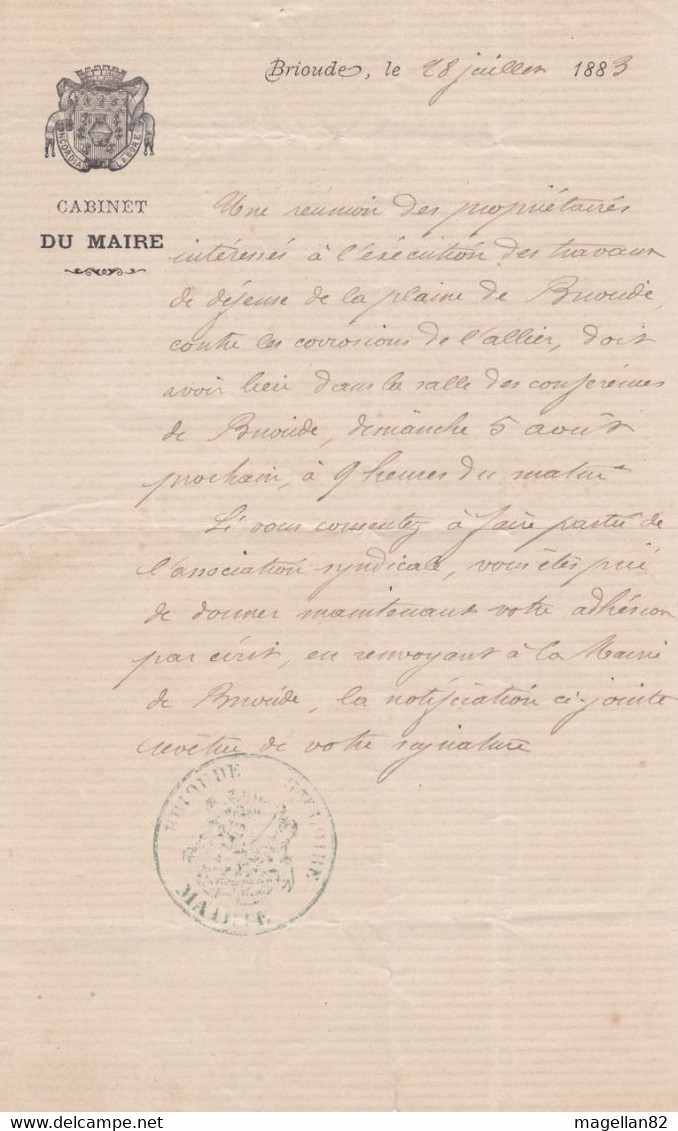 Brioude, le 28 juillet 1883
CONCORDIA LABORE
CABINET
DU MAIRE
Une réunion des propriétaires
intéressés à l'exécution des travaux
de défense de la plaine de Brioude,
contre les corrosions de l'allier, doit
avoir lieu dans la salle des conférences
de Brioude, dimanche 5 août
prochain, à 9 heures du matin
Si vous consentez à faire partie de
l'association syndicale, vous êtes prié
de donner maintenant votre adhésion
par écrit, en renvoyant à la Mairie
de Brioude, la notification ci-jointe
revêtue de votre signature
BRIOUDE HTE LOIRE
MAIRIE
magellan82